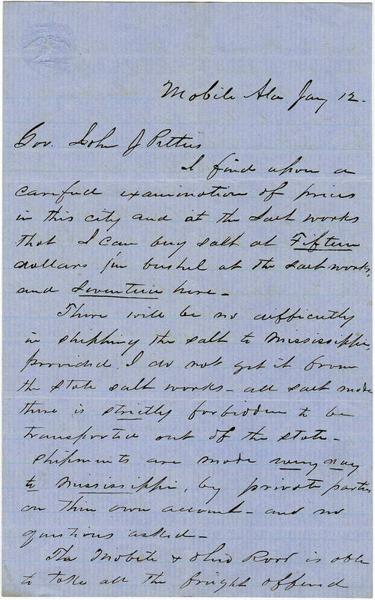 Mobile Ala Jany 12.
Gov. John J Pettus
I find upon a
careful examination of prices
in this city and at the Salt works
that I can buy salt at Fifteen
dollars per bushel at the Salt works,
and Seventeen here -
There will be no difficulty
in shipping the salt to Mississippi,
provided I do not get it from
the State salt works - all salt made
there is strictly forbidden to be
transported out of the state -
Shipments are made every day
to Mississippi, by private parties
on their own account - and no
questions asked -
The Mobile & Ohio Road is able
to take all the freight offered